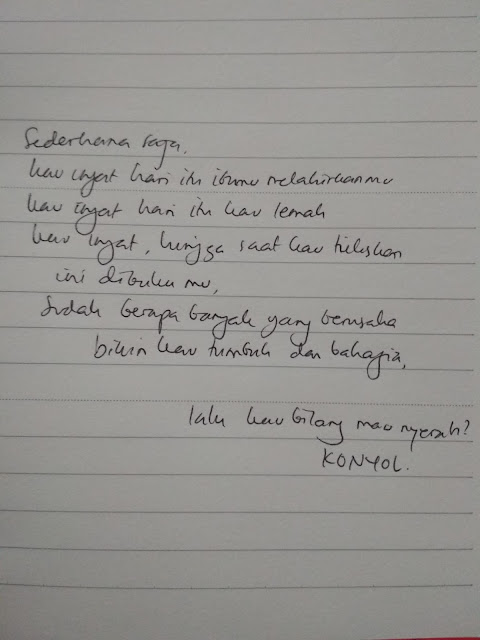 Sederhana saja.
kau ingat hari itu ibumu melahirkanmu
kau ingat hari itu kau lemah
kau ingat, hingga saat kau tuliskan
ini dibuku mu,
Sudah berapa banyak yang berusaha
bikin kau tumbuh dan bahagia,
lalu kau bilang mau nyerah?
KONYOL.